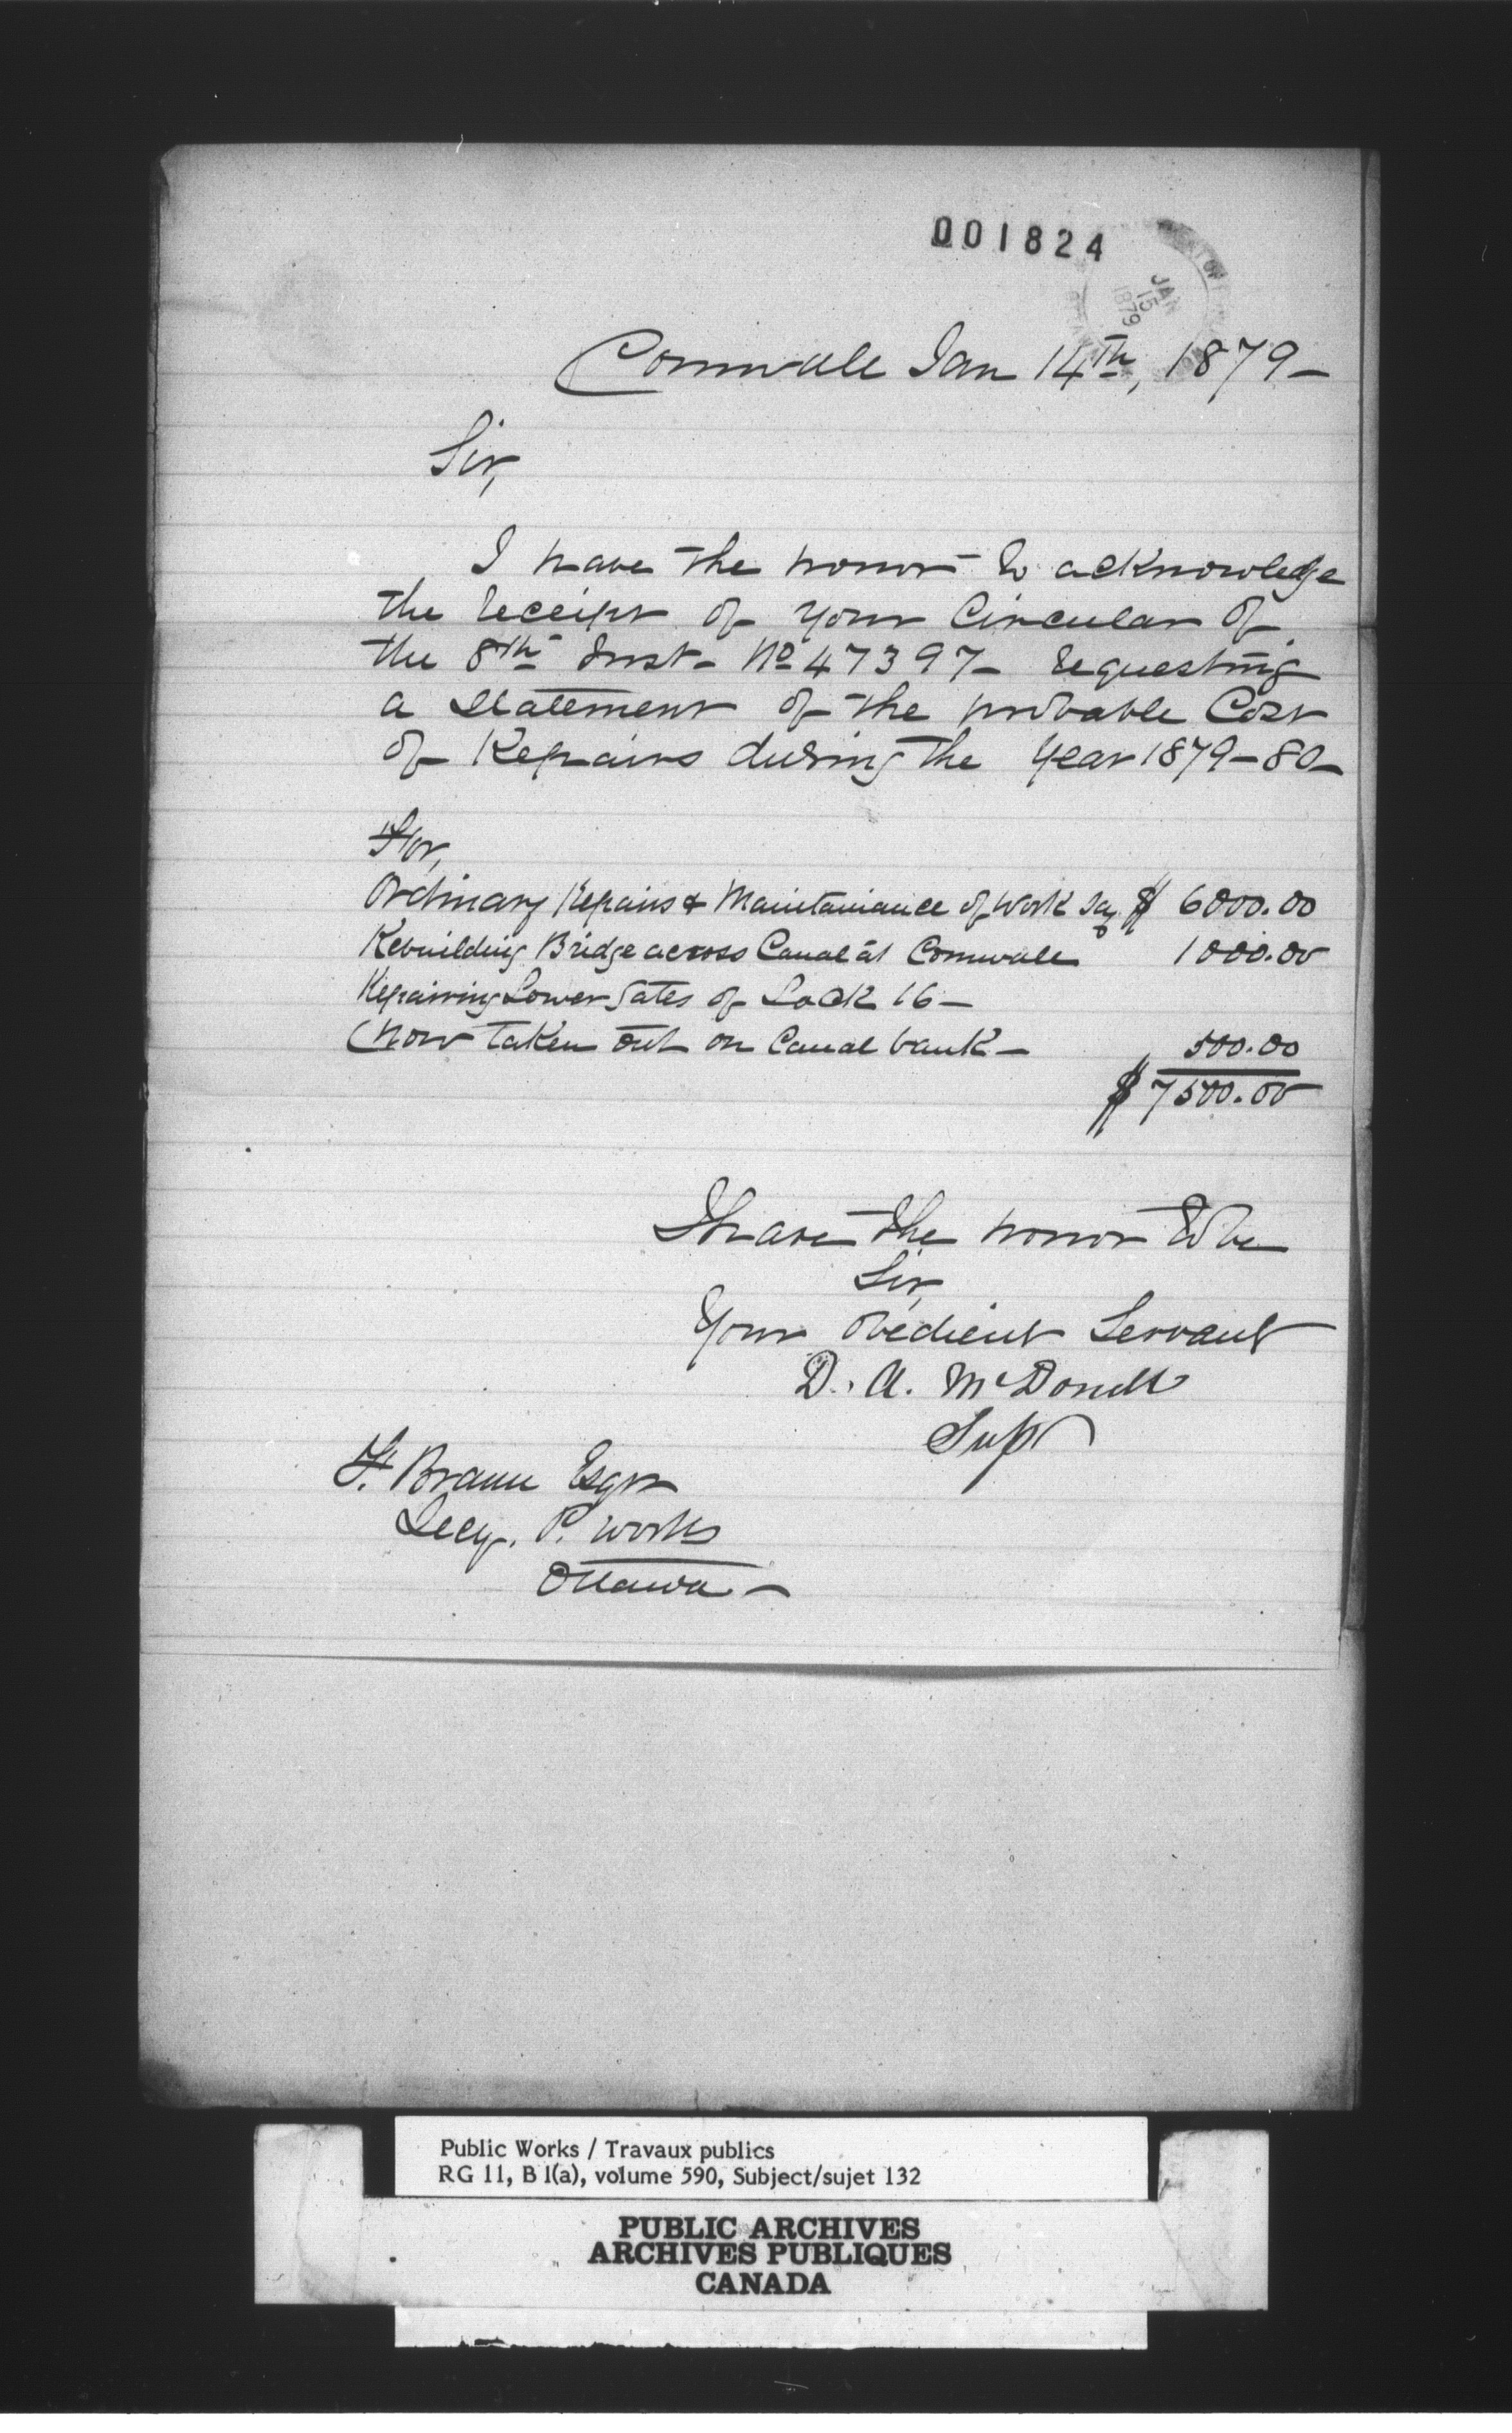 001824
JAN 15 1879
Cornwall Jan 14th, 1879-
Sir,
I have the honor to acknowledge
the receipt of your Circular of
the 8th Inst- No 47397- requesting
a Statement of the probable Cost
of Repairs during the Year 1879-80-
For,
Ordinary Repairs & Maintainance of Work say $ 6000.00
Rebuilding Bridge across Canal at Cornwall 1000.00
Repairing Lower Gates of Lock 16-
(Now taken out on Canal bank- 500.00
$ 7500.00
I have the honor to be
Sir,
Your obedient Servant
D. A. McDonell
Supt
F. Braun Esqr
Secy. P. Works
Ottawa-
Public Works / Travaux publics
RG 11, B 1(a), volume 590, Subject/sujet 132
PUBLIC ARCHIVES
ARCHIVES PUBLIQUES
CANADA